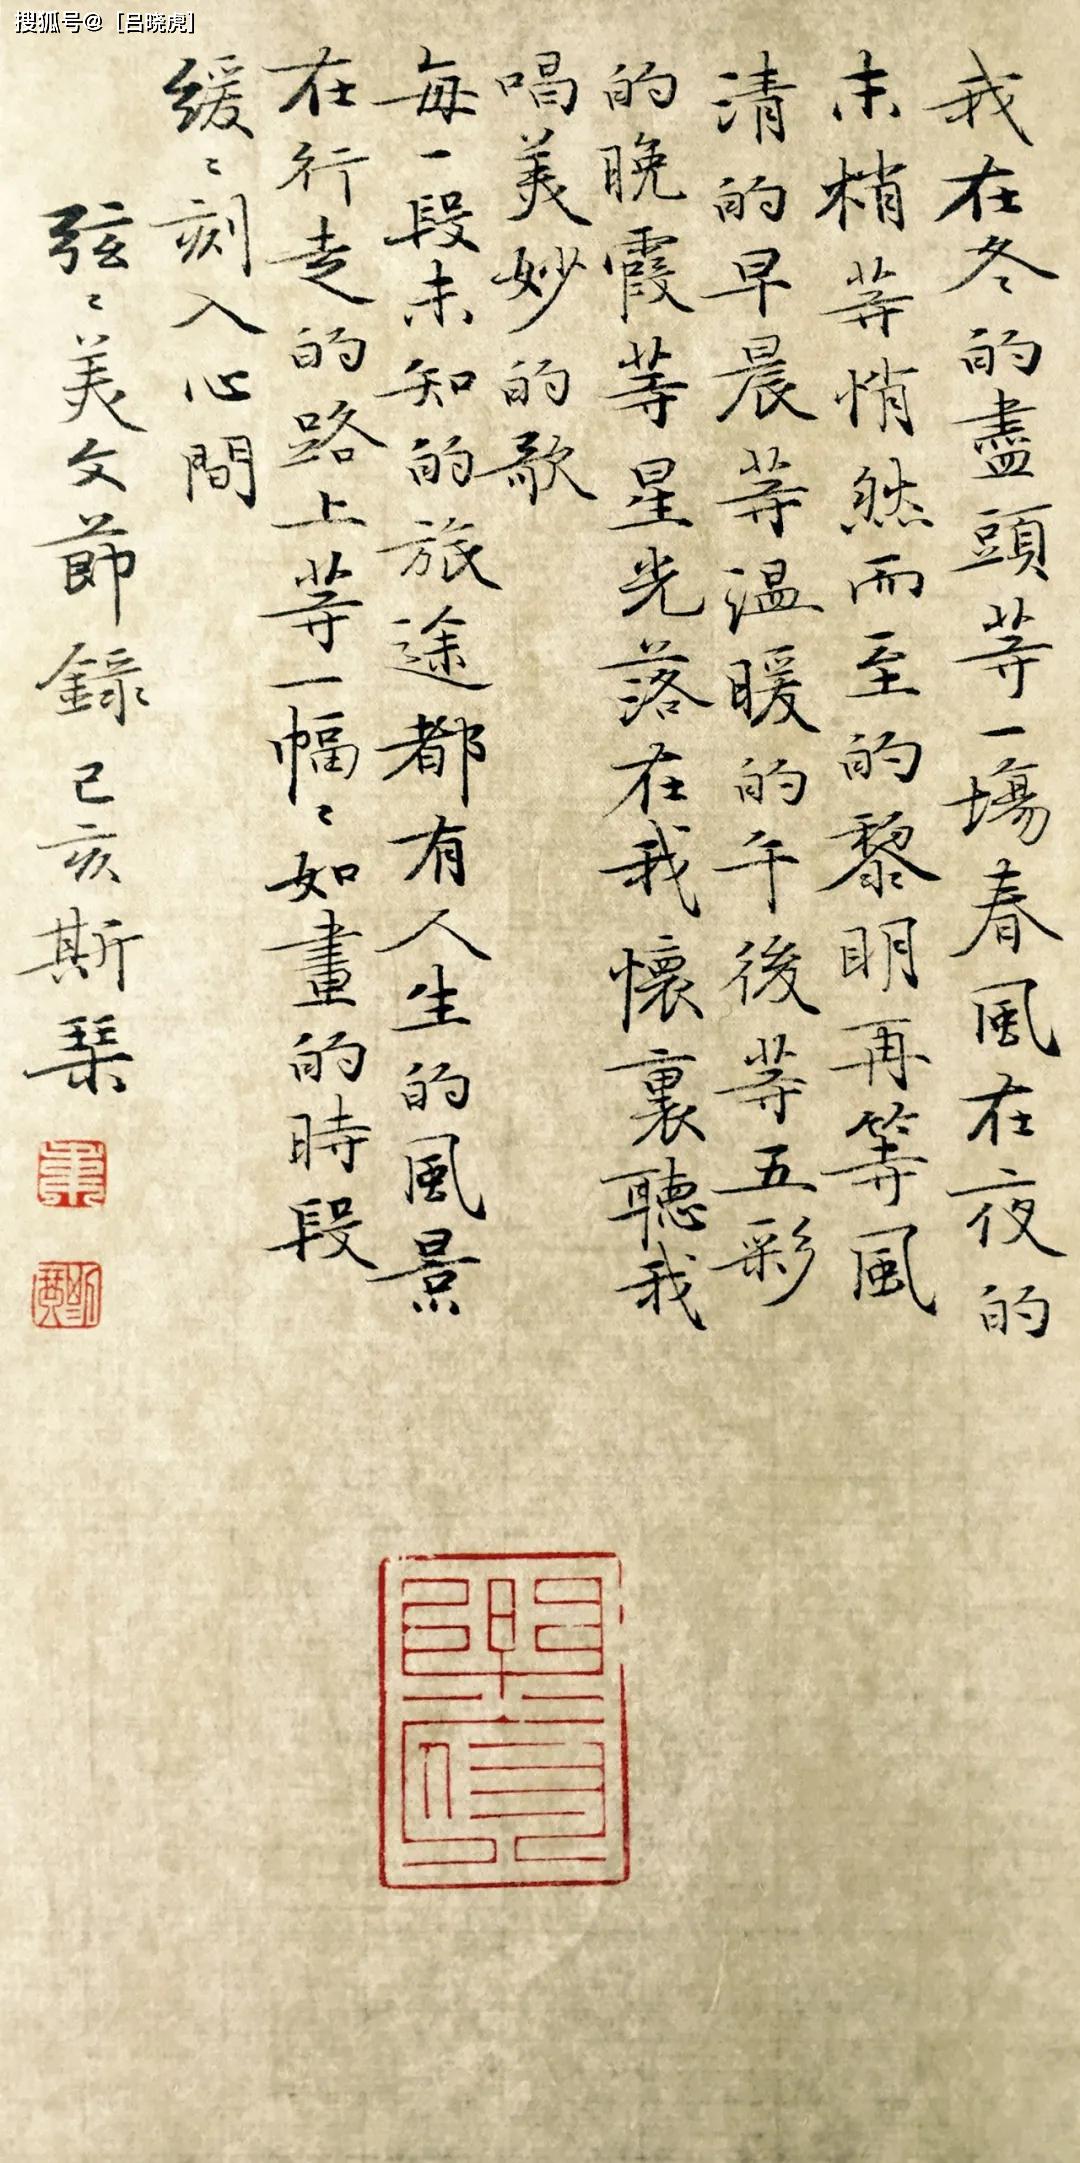 搜狐号@[吕晓虎]
我在冬的盡頭等一場春風在夜的
末梢等悄然而至的黎明再等風
清的早晨等温暖的午後等五彩
的晚霞等星光落在我懷裏聽我
唱美妙的歌
每一段未知的旅途都有人生的風景
在行走的路上等一幅〻如畫的時段
緩〻刻入心間
弦〻美文節錄己亥斯琹